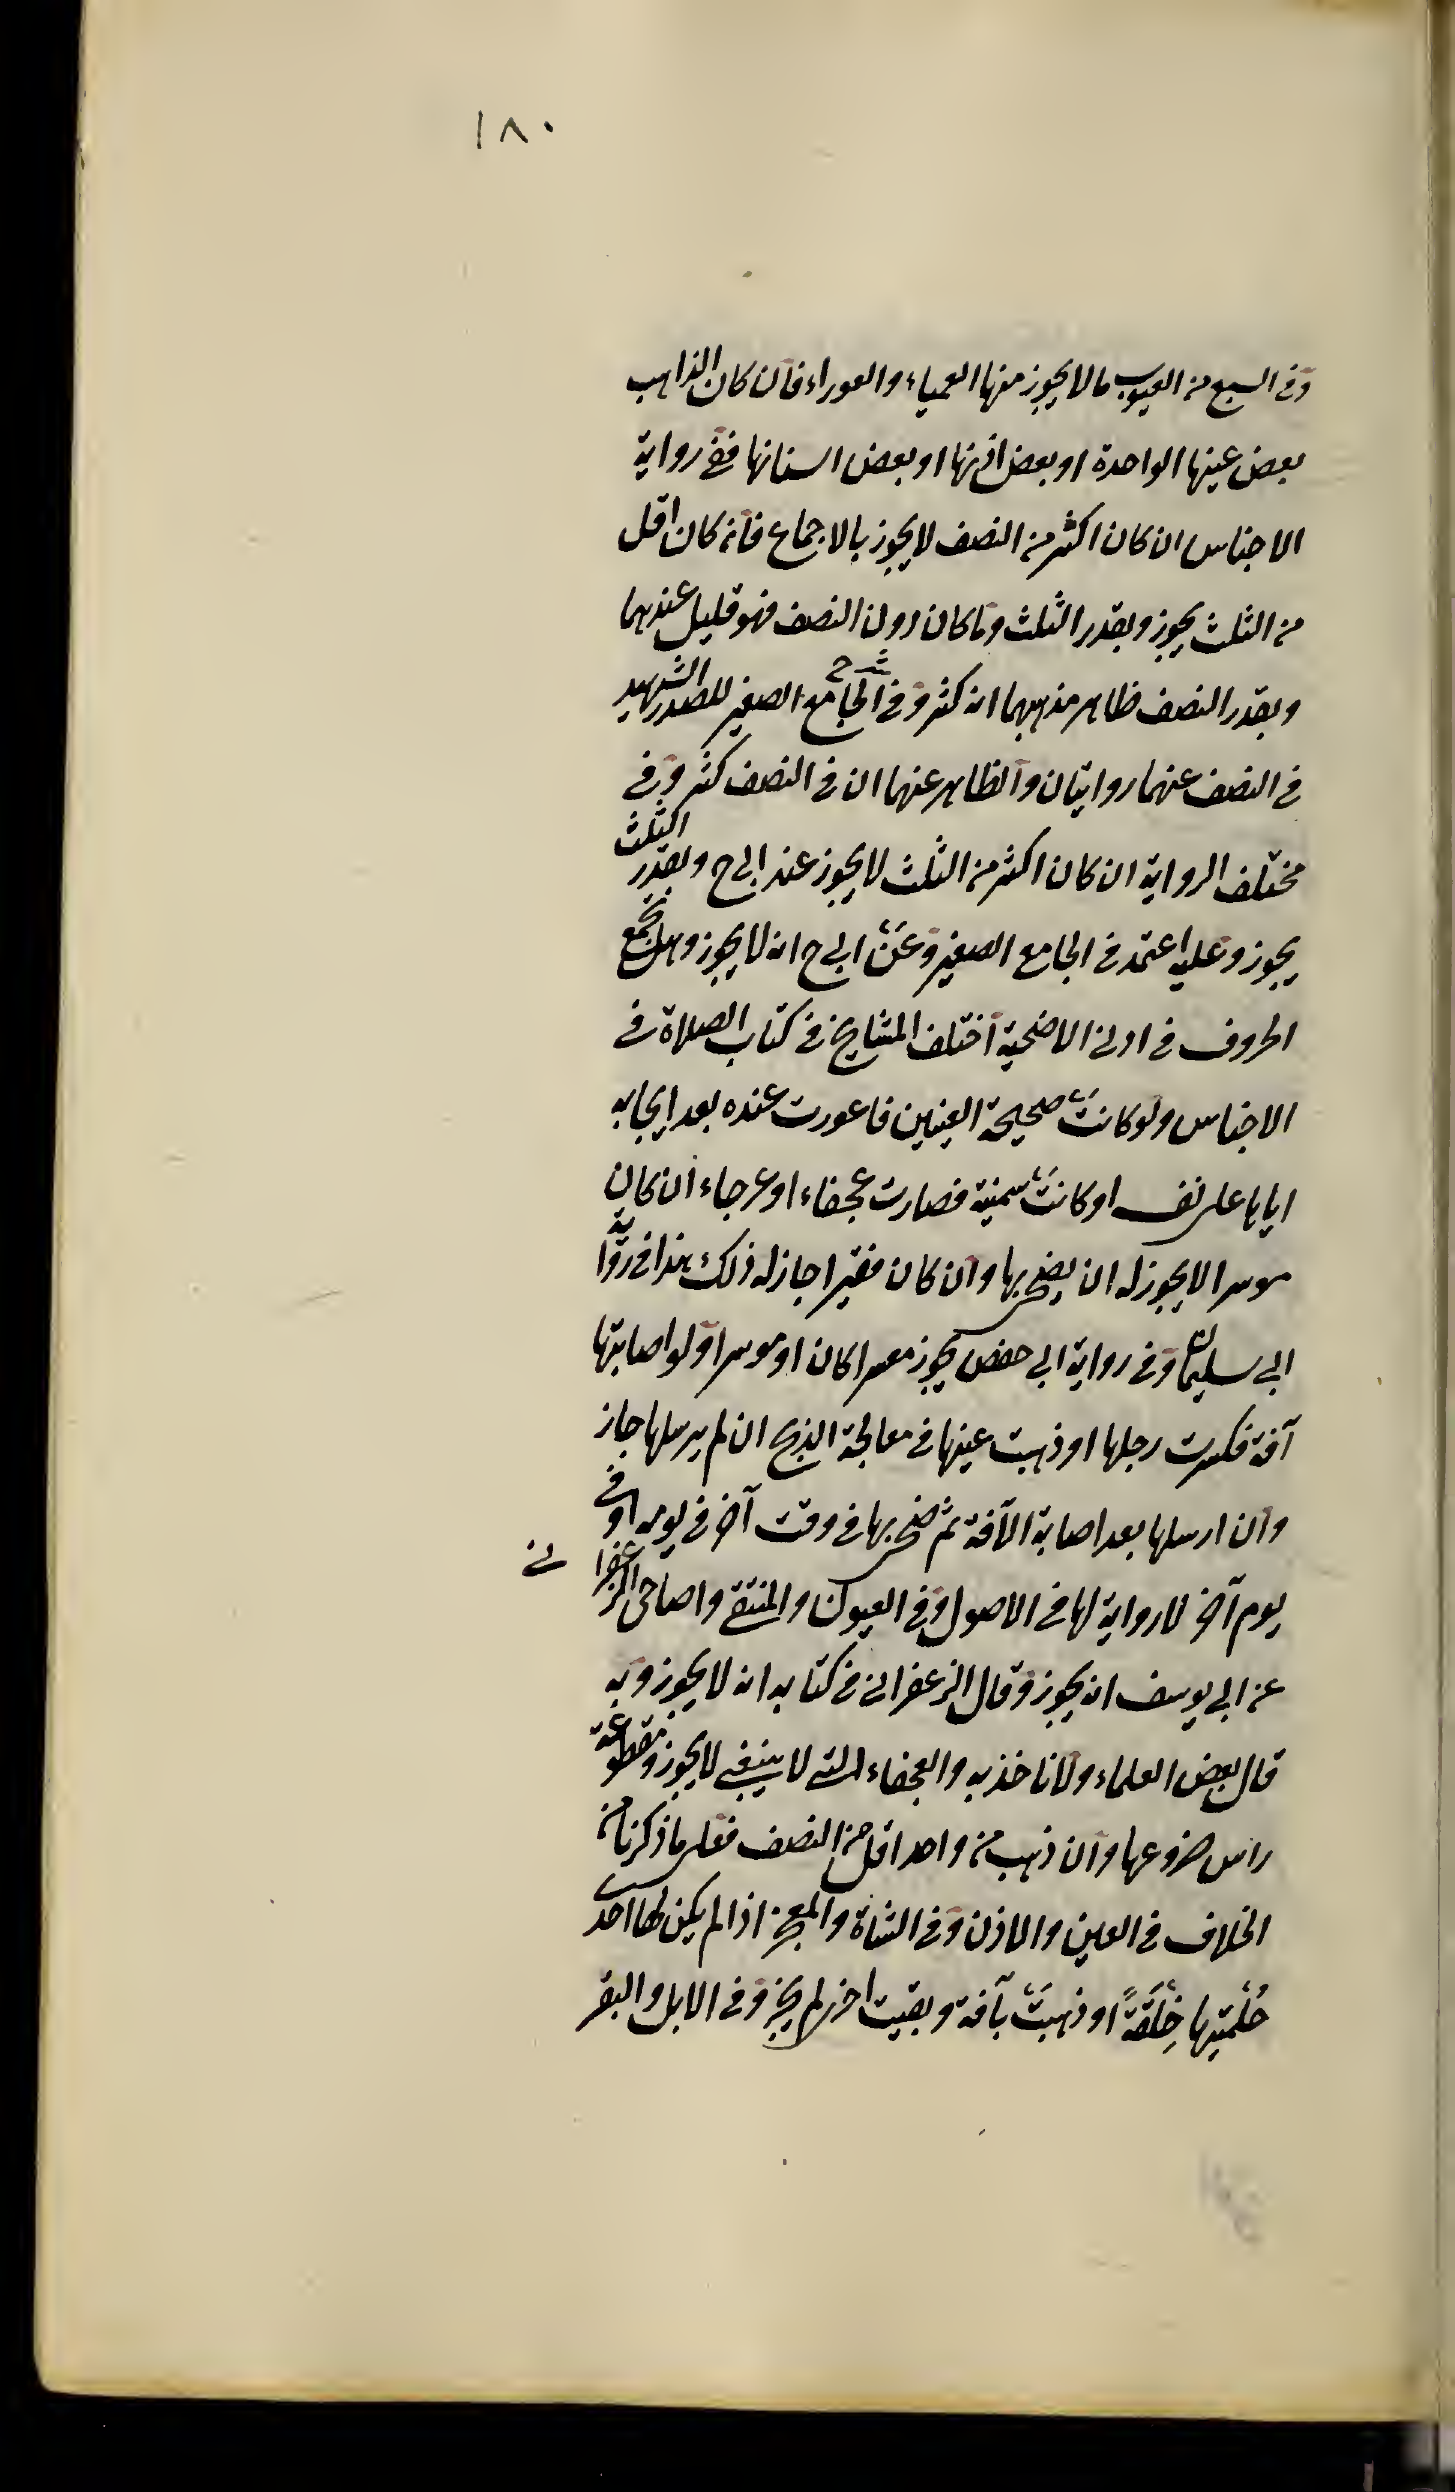 ١٨٠
وفى السبع من العيوب ما لا يجوز منها العمياء والعوراء فان كان الذاهب
بعض عينها الواحدة او بعض اذنها او بعض اسنانها ففى رواية
الاجناس ان كان اكثر من النصف لا يجوز بالاجماع فان كان اقل
من الثلث يجوز وبقدر الثلث وما كان دون النصف فهو قليل عندهما
وبقدر النصف ظاهر مذهبهما انه كثير وفى شرح الجامع الصغير للصدر الشهيد
فى النصف عنهما روايتان والظاهر عنهما ان فى النصف كثير وفى
مختلف الرواية ان كان اكثر من الثلث لا يجوز عند ابى ح وبقدر الثلث
يجوز وعليه اعتمد فى الجامع الصغير وعن ابى ح انه لا يجوز وهل يجمع
الخروق فى اذنى الاضحية اختلف المشايخ فى كتاب الصلاة فى
الاجناس ولو كانت صحيحة العينين فاعورت عنده بعد ايجابه
اياها على نفسه او كانت سمينة فصارت عجفاء او عرجاء ان كان
موسرا لا يجوز له ان يضحى بها وان كان فقيرا جاز له ذلك هذا فى رواية
ابى سليمان وفى رواية ابى حفص يجوز معسرا كان او موسرا ولو اصابتها
آفة فكسرت رجلها او ذهبت عينها فى معالجة الذبح ان لم يرسلها جاز
وان ارسلها بعد اصابة الآفة ثم ضحى بها فى وقت آخر فى يومه او فى
يوم آخر لا رواية لها فى الاصول وفى العيون والمنتقى واضاحى الزعفرانى
عن ابى يوسف انه يجوز وقال الزعفرانى فى كتابه انه لا يجوز وبه
قال بعض العلماء ولا ناخذ به والعجفاء التى لا ينقى لا يجوز ومقطوعة
راس ضروعها وان ذهب من واحد اقل من النصف فعلى ما ذكرنا من
الخلاف فى العين والاذن وفى الشاة والمعز اذا لم يكن لها احدى
حلمتيها خلقة او ذهبت بآفة وبقيت اخرى لم يجز وفى الابل والبقر